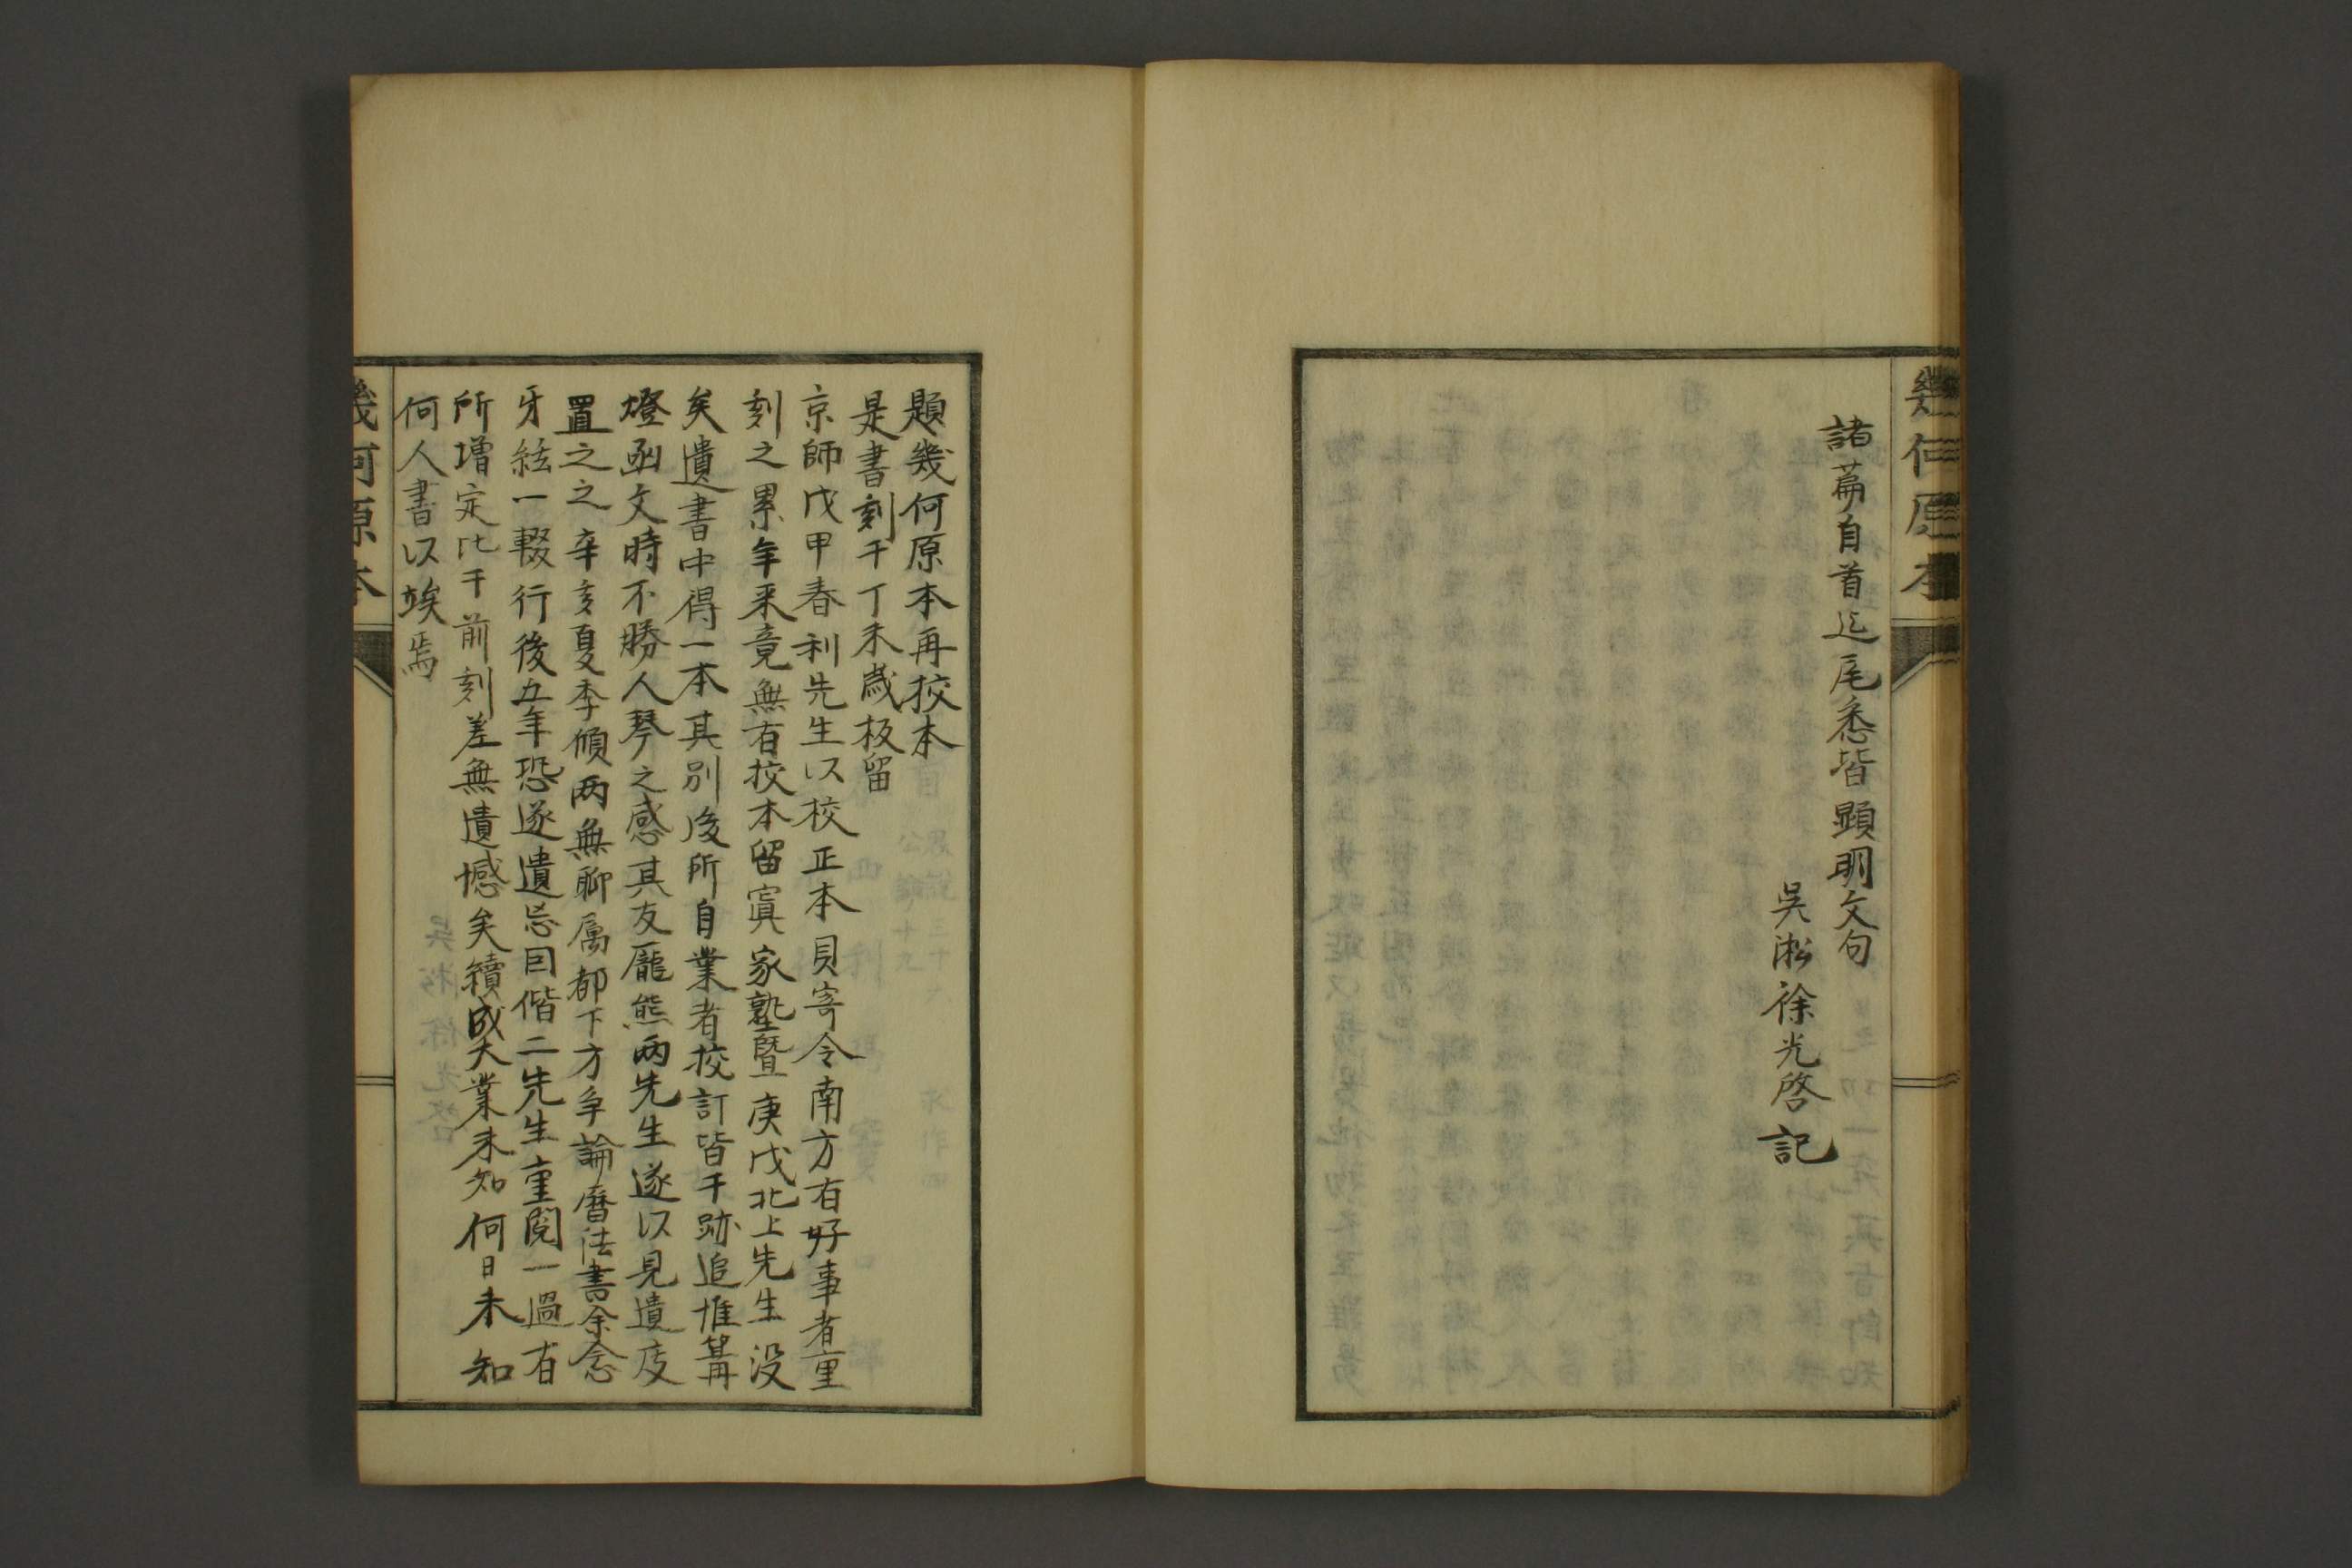 幾何原本
諸萹自首迄尾悉皆顯明文句
吳淞徐光啓記
題幾何原本再挍本
是書刻于丁未歲板留
京師戊申春利先生以校正本見寄令南方有好事者重
刻之累年來竟無有挍本留寘家塾曁庚戌北上先生没
矣遺書中得一本其別後所自業者挍訂皆手跡追惟篝
燈函文時不勝人琴之感其友龐熊両先生遂以見遺庋
置之之辛亥夏季傾两無聊属都下方争論曆法書余念
牙絃一輟行後五年恐遂遺忘因偕二先生重閱一過有
所增定比于前刻差無遺憾矣續成大業未知何日未知
何人書以竢焉
幾何原本